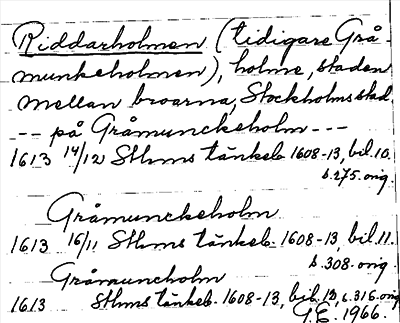 Riddarholmen (tidigare Grå-
munkeholmen), holme, staden
mellan broarna, Stockholms stad.
--- på Gråmunckeholm ---
1613 14/12 Sthms tänkeb. 1608-13, bil. 10.
s. 275. orig.
Gråmunckeholm
1613 16/11 Sthms tänkeb. 1608-13, bil. 11.
s. 308. orig.
Gråmuncholm
1613 Sthms tänkeb. 1608-13, bil. 12, s. 316. orig.
G.E. 1966.